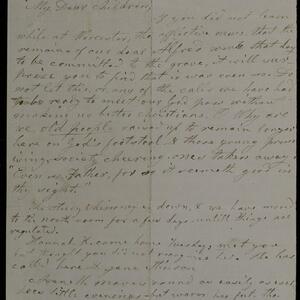 My Dear Children,
If you did not learn
while at Worcester, the afflictive news that the
remains of our dear Alfred's were that day
to be committed to the grave, it will sur-
prise you to find that is was even so. Do
not let this, & any of the calls we have had
to be ready to meet our God pass without
making us better christians. O Why are
we old people saved up to remain longer
here on God's footstool & those young promi-
sing society cheering ones taken away
"Even so, Father, for so it seemeth good in
thy sight."
The chimney is down, & we have moved
to the north room for a few days until things are
regulated.
Hannah K. came home Tuesday, met you
but thought you did not recognize her. She has
called here
moves round as easily as ever
little evenings